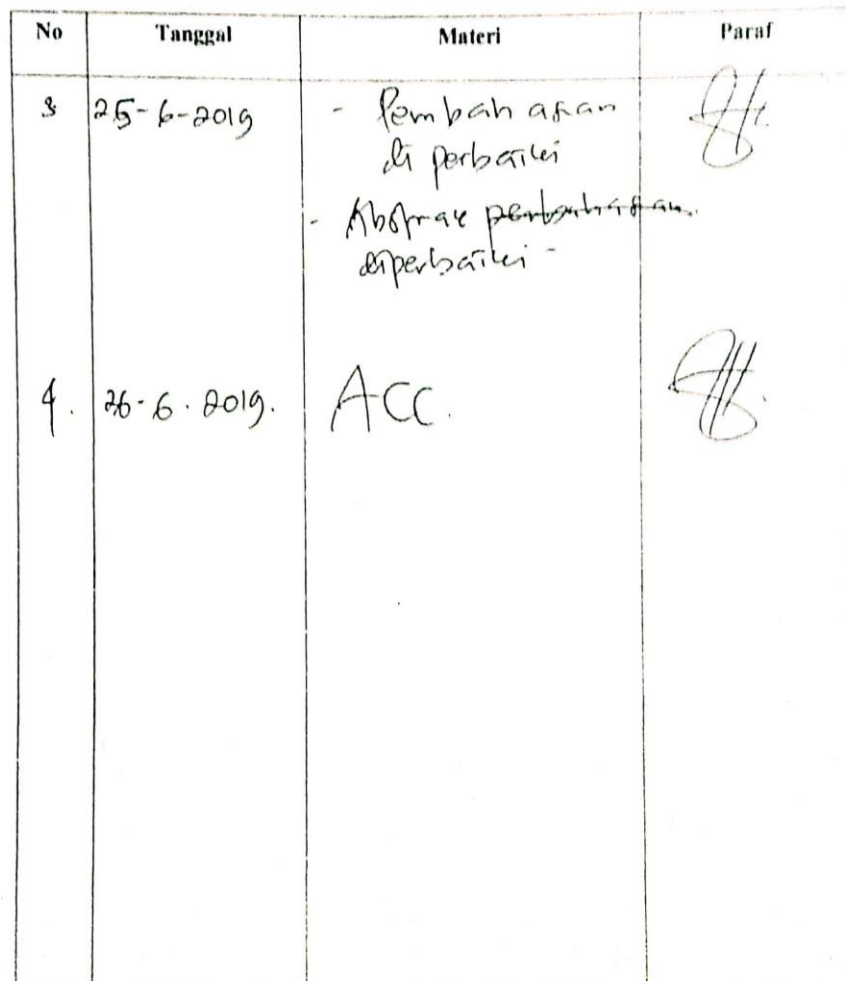 No Tanggal Materi Paraf
3 25-6-2019 - Pembahasan
di perbaiki
- Abstrak pembahasan
diperbaiki -
4. 26-6-2019. ACC.